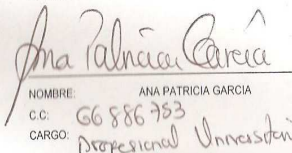 Ana Patricia García
NOMBRE: ANA PATRICIA GARCIA
C.C: 66886753
CARGO: Profesional Universitari